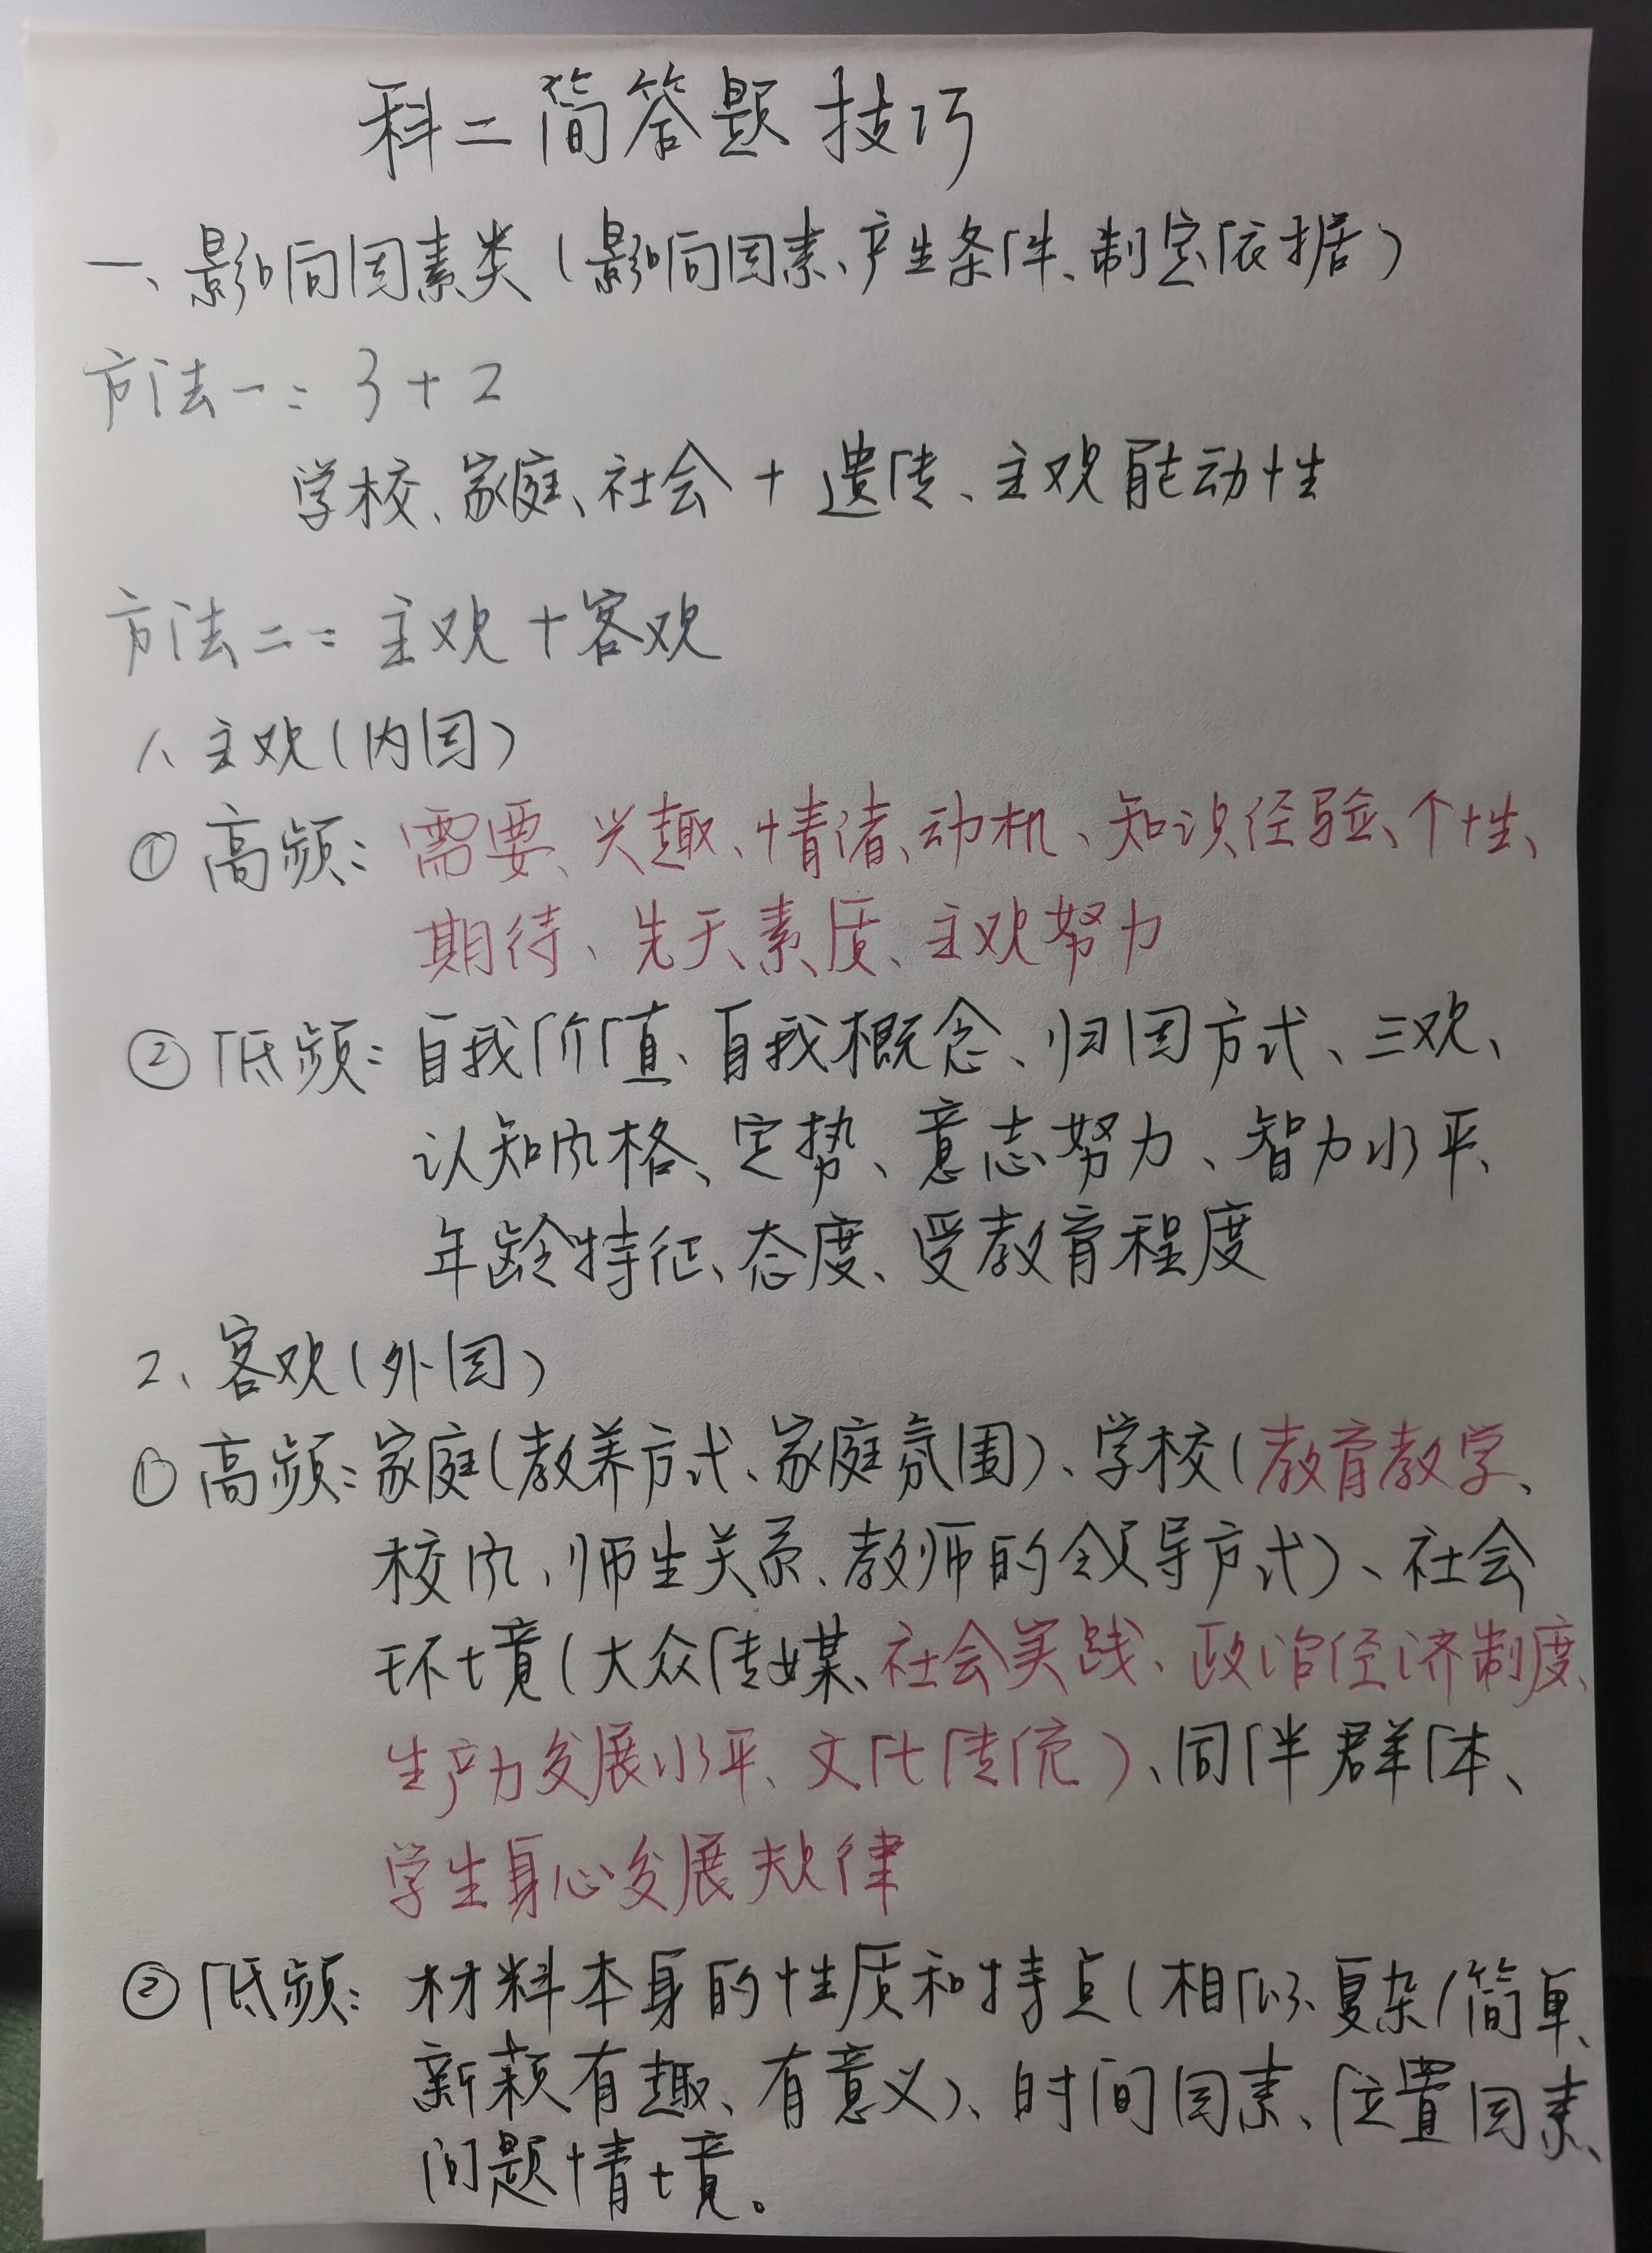 科二简答题技巧
一、影响因素类（影响因素、产生条件、制定依据）
方法一：3+2
学校、家庭、社会+遗传、主观能动性
方法二：主观+客观
1、主观（内因）
①高频：需要、兴趣、情绪、动机、知识经验、个性、
期待、先天素质、主观努力
②低频：自我价值、自我概念、归因方式、三观、
认知风格、定势、意志努力、智力水平、
年龄特征、态度、受教育程度
2、客观（外因）
①高频：家庭（教养方式、家庭氛围）、学校（教育教学、
校风、师生关系、教师的领导方式）、社会
环境（大众传媒、社会实践、政治经济制度、
生产力发展水平、文化传统）、同伴群体、
学生身心发展规律
②低频：材料本身的性质和特点（相似、复杂/简单、
新颖有趣、有意义）、时间因素、位置因素、
问题情境。